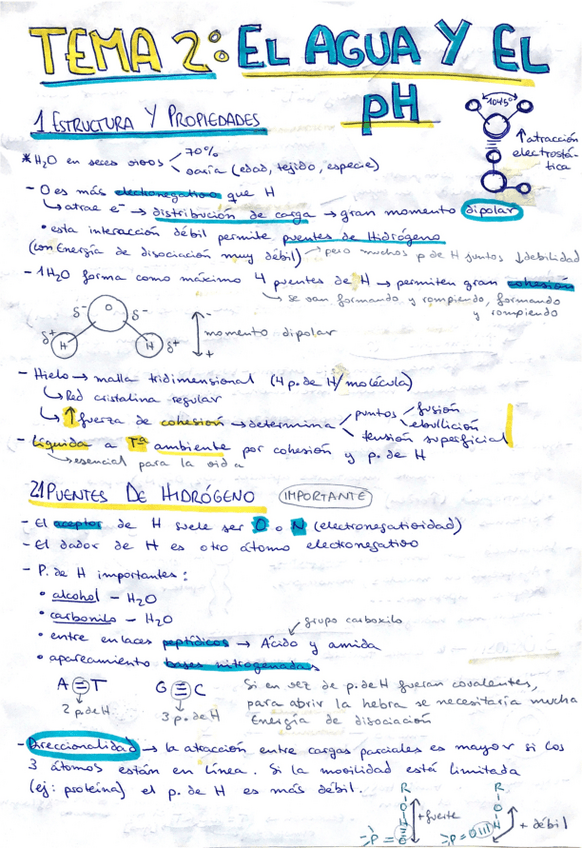 TEMA 2: EL AGUA Y EL
pH
104'5º
↑atracción
electrostá-
tica
1 ESTRUCTURA Y PROPIEDADES
* H₂O en seres vivos < 70%
varía (edad, tejido, especie)
- O es más electronegativo que H
↳ atrae e⁻ → distribución de carga → gran momento dipolar
• esta interacción débil permite puentes de Hidrógeno
(con Energía de disociación muy débil) ↳ pero muchos p de H juntos ↓debilidad
- 1 H₂O forma como máximo 4 puentes de H → permiten gran cohesión
↳ se van formando y rompiendo, formando
y rompiendo
δ⁻ O δ⁻
δ⁺ H H δ⁺
- momento dipolar
+
- Hielo → malla tridimensional (4 p. de H/molécula)
↳ Red cristalina regular
↳ ↑ fuerza de cohesión → determina < puntos < fusión
ebullición
tensión superficial
- Líquida a Tª ambiente por cohesión y p. de H
↳ esencial para la vida
2.1 PUENTES DE HIDRÓGENO (IMPORTANTE)
- El aceptor de H suele ser O o N (electronegatividad)
- El dador de H es otro átomo electronegativo
- P. de H importantes:
• alcohol - H₂O
• carbonilo - H₂O
grupo carboxilo
• entre enlaces peptídicos → Ácido y amida
• apareamiento bases nitrogenadas
A = T G ≡ C
2 p.de H 3 p. de H
Si en vez de p. de H fueran covalentes,
para abrir la hebra se necesitaría mucha
Energía de disociación
- Direccionalidad → la atracción entre cargas parciales es mayor si los
3 átomos están en línea. Si la movilidad está limitada
(ej: proteína) el p. de H es más débil.
R R
O O
H + fuerte H + débil
-P= O -P=O